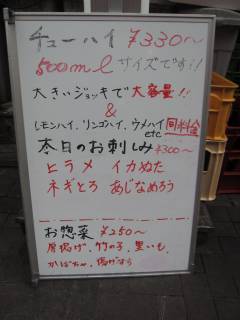 チューハイ ¥330〜
500ml サイズです!!
大きいジョッキで大容量!!
&
レモンハイ、リンゴハイ、ウメハイ etc 同料金
本日のお刺しみ ¥300〜
ヒラメ イカぬた
ネギとろ あじなめろう
お惣菜 ¥250〜
厚揚げ、竹の子、里いも、
かぼちゃ、揚げなす